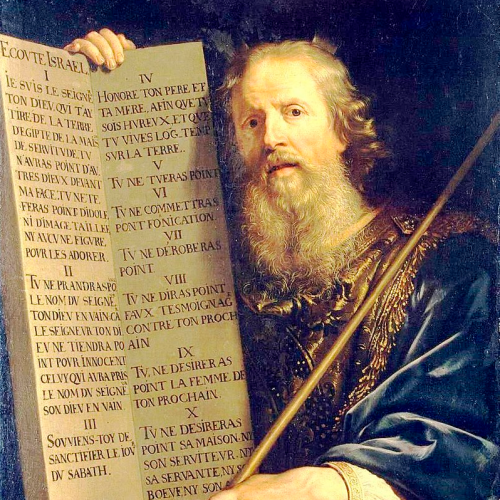 ECOVTE ISRAEL,
I
IE SVIS LE SEIGNE
TON DIEV, QVI T'AY
TIRE DE LA TERRE
D'EGIPTE DE LA MAIS
DE SERVITVDE. TV
N'AVRAS POINT D'AV
TRES DIEVX DEVANT
MA FACE. TV NE TE
FERAS POINT D'IDOLE
NI D'IMAGE TAILLEE
NY AVCVNE FIGVRE
POVR LES ADORER.
II
TV NE PRANDRAS PO
LE NOM DV SEIGNE
TON DIEV EN VAIN CA
LE SEIGNEVR TON DI
EV NE TIENDRA PO
INT POVR INNOCENT
CELVY QVI AVRA PRIS
LE NOM DV SEIGNE
SON DIEV EN VAIN
III
SOVVIENS-TOY DE
SANCTIFIER LE IOV
DV SABATH.
IV
HONORE TON PERE ET
TA MERE, AFIN QVE TV
SOIS HVREVX, ET QVE
TV VIVES LOG-TEMP
SVR LA TERRE.
V
TV NE TVERAS POINT
VI
TV NE COMMETTRAS
POINT FONICATION
VII
TV NE DEROBERAS
POINT
VIII
TV NE DIRAS POINT,
FAVX TESMOIGNAG
CONTRE TON PROCH
AIN
IX
TV, NE DESIRERAS
POINT LA FEMME DE
TON PROCHAIN.
X
TV NE DESIRERAS
POINT SA MAISON, NI
SON SERVITEVR, NI
SA SERVANTE, NY S
BOEVF, NY SON